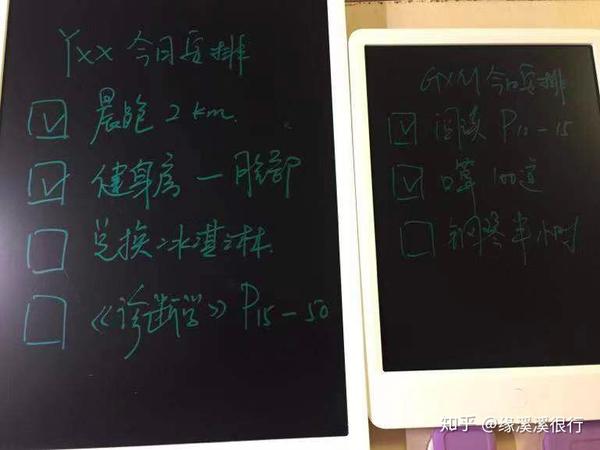 Yxx 今日安排
☑ 晨跑 2 km.
☑ 健身房一胸部
☐ 兑换冰淇淋
☐ 《诊断学》P15-50
GXM 今日安排
☑ 阅读 P10-15
☑ 口算 100道
☐ 钢琴半小时
知乎 @缘溪溪很行